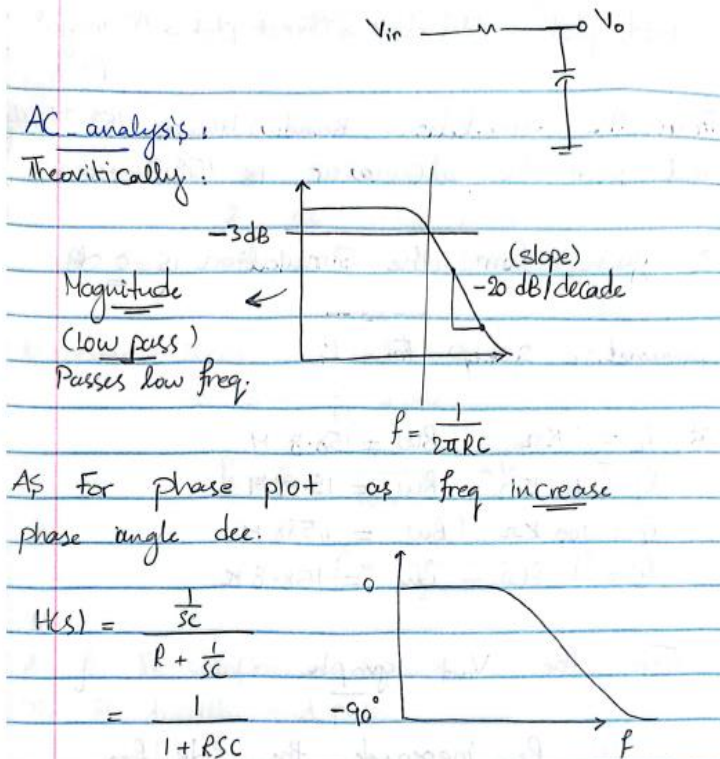 Vin Vo
AC analysis:
Theoritically:
-3dB
(slope)
-20 dB/decade
Magnitude
(Low pass)
Passes low freq.
f = 1/2πRC
As For phase plot as freq increase
phase angle dec.
H(s) = 1/SC / R + 1/SC
= 1/1 + RSC
0
-90°
f